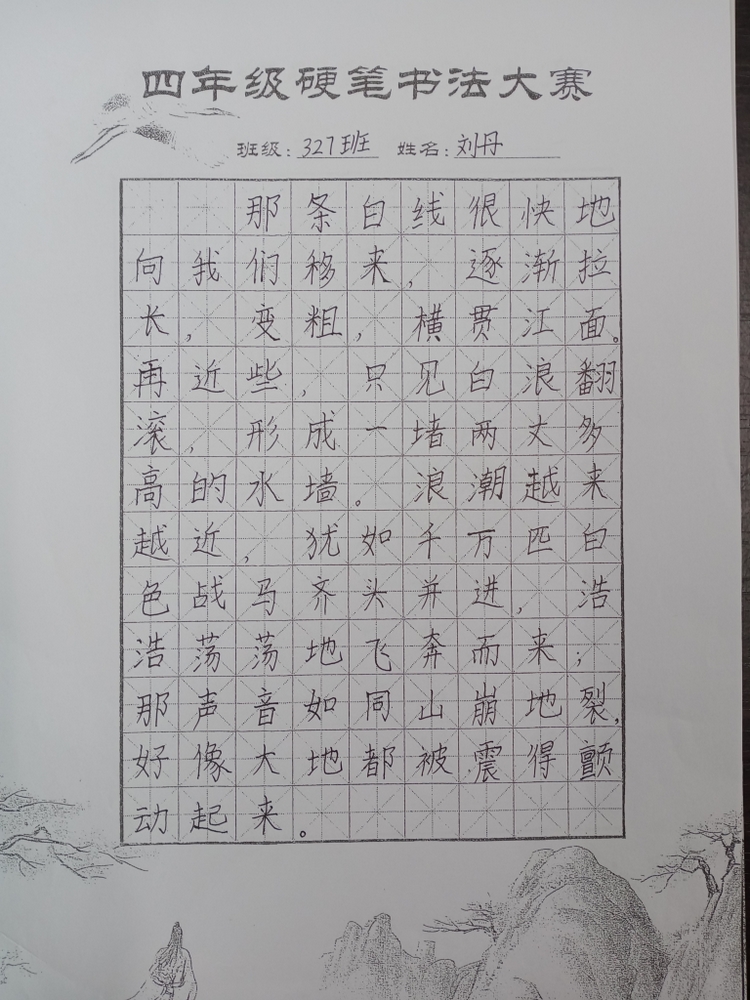 四年级硬笔书法大赛
班级：327班 姓名：刘丹
那条白线很快地
向我们移来，逐渐拉
长，变粗，横贯江面。
再近些，只见白浪翻
滚，形成一堵两丈多
高的水墙。浪潮越来
越近，犹如千万匹白
色战马齐头并进，浩
浩荡荡地飞奔而来；
那声音如同山崩地裂，
好像大地都被震得颤
动起来。